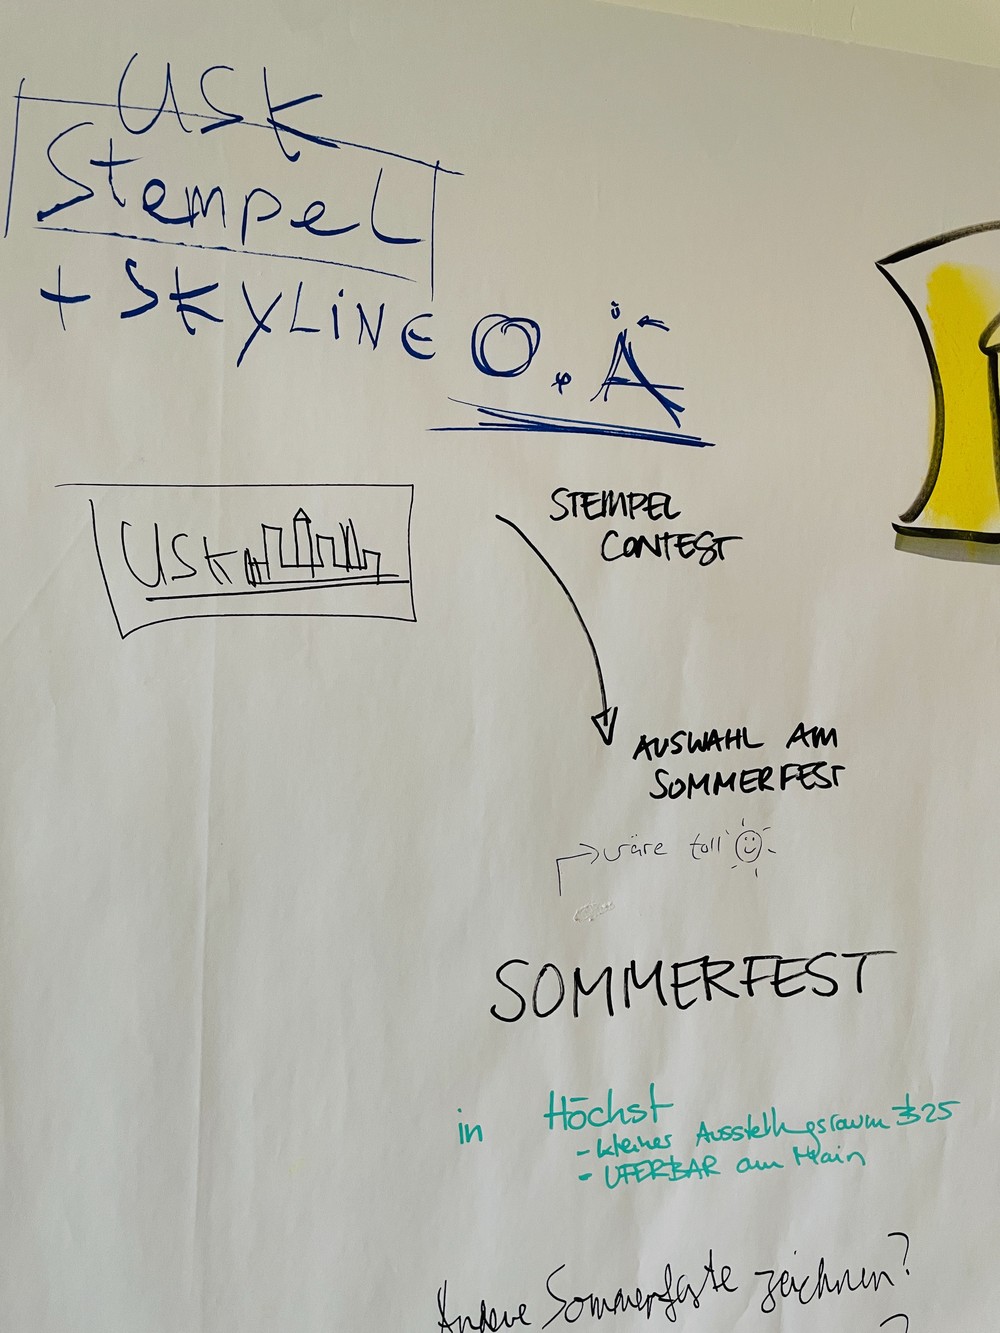 USK
Stempel
+ SKYLINE O.Ä
USK
STEMPEL
CONTEST
AUSWAHL AM
SOMMERFEST
wäre toll
SOMMERFEST
in Höchst
- kleines Ausstellungsraum 25
- UFERBAR am Main
Andere Sommerfeste zeichnen?
?